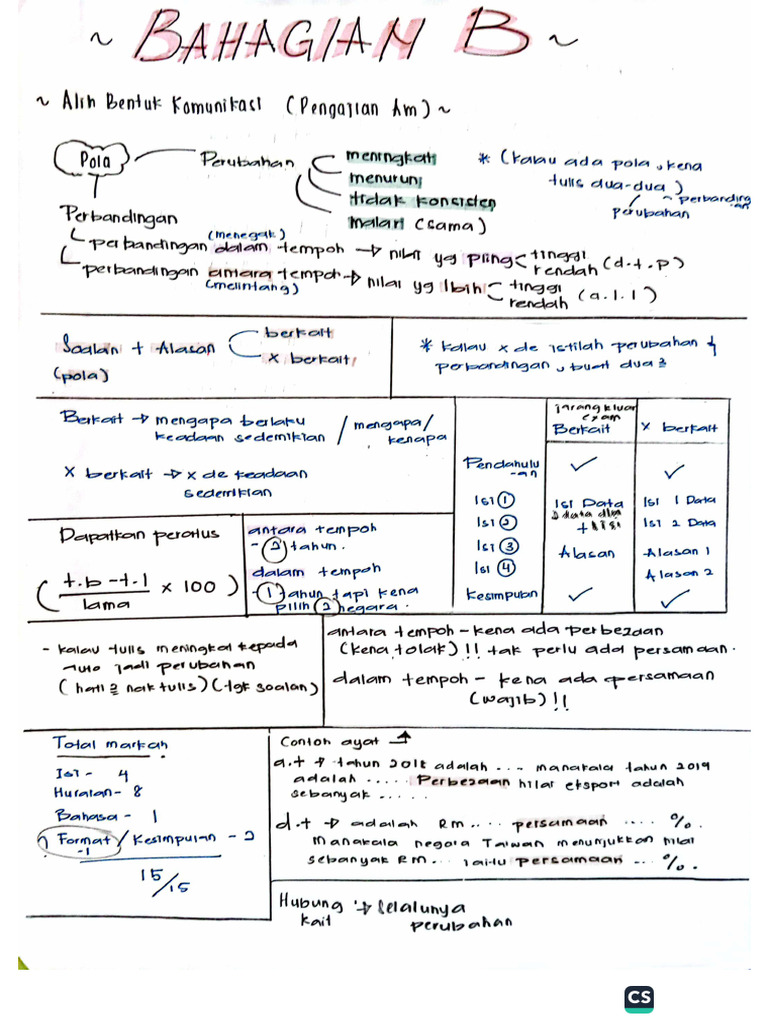 ~ BAHAGIAN B ~
~ Alih Bentuk Komunikasi (Pengajian Am) ~
Pola
Perubahan
meningkat
menurun
tidak konsisten
malar (sama)
* (kalau ada pola, kena
tulis dua-dua)
perubahan
perbandingan
Perbandingan
(menegak)
perbandingan dalam tempoh → nilai yg pling
tinggi
rendah (d.t.p)
perbandingan antara tempoh → nilai yg lbih
(melintang)
tinggi
rendah (a.l.l)
Soalan + Alasan
(pola)
berkait
x berkait
* kalau x de istilah perubahan &
perbandingan, buat dua²
Berkait → mengapa berlaku
keadaan sedemikian / mengapa/
kenapa
x berkait → x de keadaan
sedemikian
jarang kluar
exam
Berkait
x berkait
Pendahulu
-an
✓
✓
Isi ①
Isi Data
Isi 1 Data
Isi ②
+ 
Isi 2 Data
Isi ③
Alasan
Alasan 1
Isi ④
Alasan 2
Kesimpulan
✓
✓
Dapatkan peratus
(t.b - t.l / lama x 100)
antara tempoh
- ② tahun.
dalam tempoh
- ① tahun tapi kena
pilih ② negara.
- kalau tulis meningkat kepada
auto jadi perubahan
(hati² nak tulis) (tgk soalan)
antara tempoh - kena ada perbezaan
(kena tolak)!! tak perlu ada persamaan.
dalam tempoh - kena ada persamaan
(wajib)!!
Total markah
Isi - 4
Huraian - 8
Bahasa - 1
Format / Kesimpulan - 2
-1
15/15
Contoh ayat
a.t → tahun 2018 adalah ... manakala tahun 2019
adalah ..... Perbezaan nilai eksport adalah
sebanyak .....
d.t → adalah RM.... persamaan .... %.
manakala negara Taiwan menunjukkan nilai
sebanyak RM... iaitu persamaan ... %.
Hubung → Selalunya
kait perubahan
CS